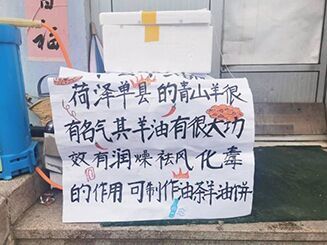 福
荷泽单县的青山羊很
有名气其羊油有很大功
效有润燥祛风化毒
的作用可制作油茶羊油饼